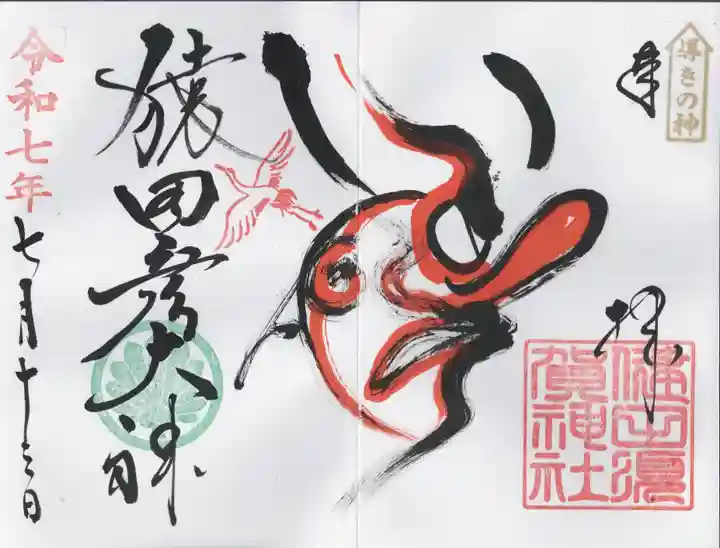 導きの神
奉拝
健田須
賀神社
猿田彦大神
令和七年七月十三日